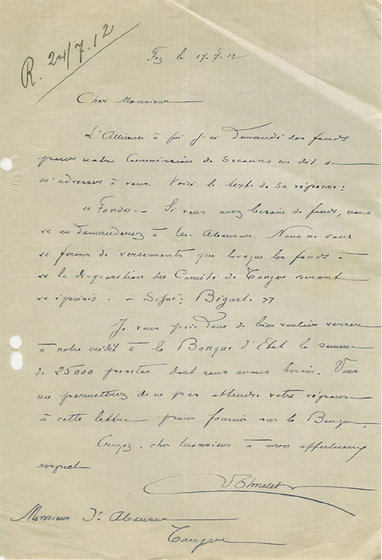 R. 24/7.12
Fez le 17.7.12
Cher Monsieur
L'Alliance à qui j'ai demandé des fonds
pour notre Commission de Secours me dit de
m'adresser à vous. Voici le texte de sa réponse:
« Fonds. - Si vous avez besoin de fonds, vous
« en demanderez à M. Abensur. Nous ne vous
« ferons de versements que lorsque les fonds à
« la disposition du Comité de Tanger seront
« épuisés. - Signé: Bigart. »
Je vous prie donc de bien vouloir verser
à notre crédit à la Banque d'Etat la somme
de 25000 pesetas dont nous avons besoin. Vous
me permettrez de ne pas attendre votre réponse
à cette lettre pour fournir sur la Banque.
Croyez, cher Monsieur, à mon affectueux
respect
Monsieur Abensur
Tanger